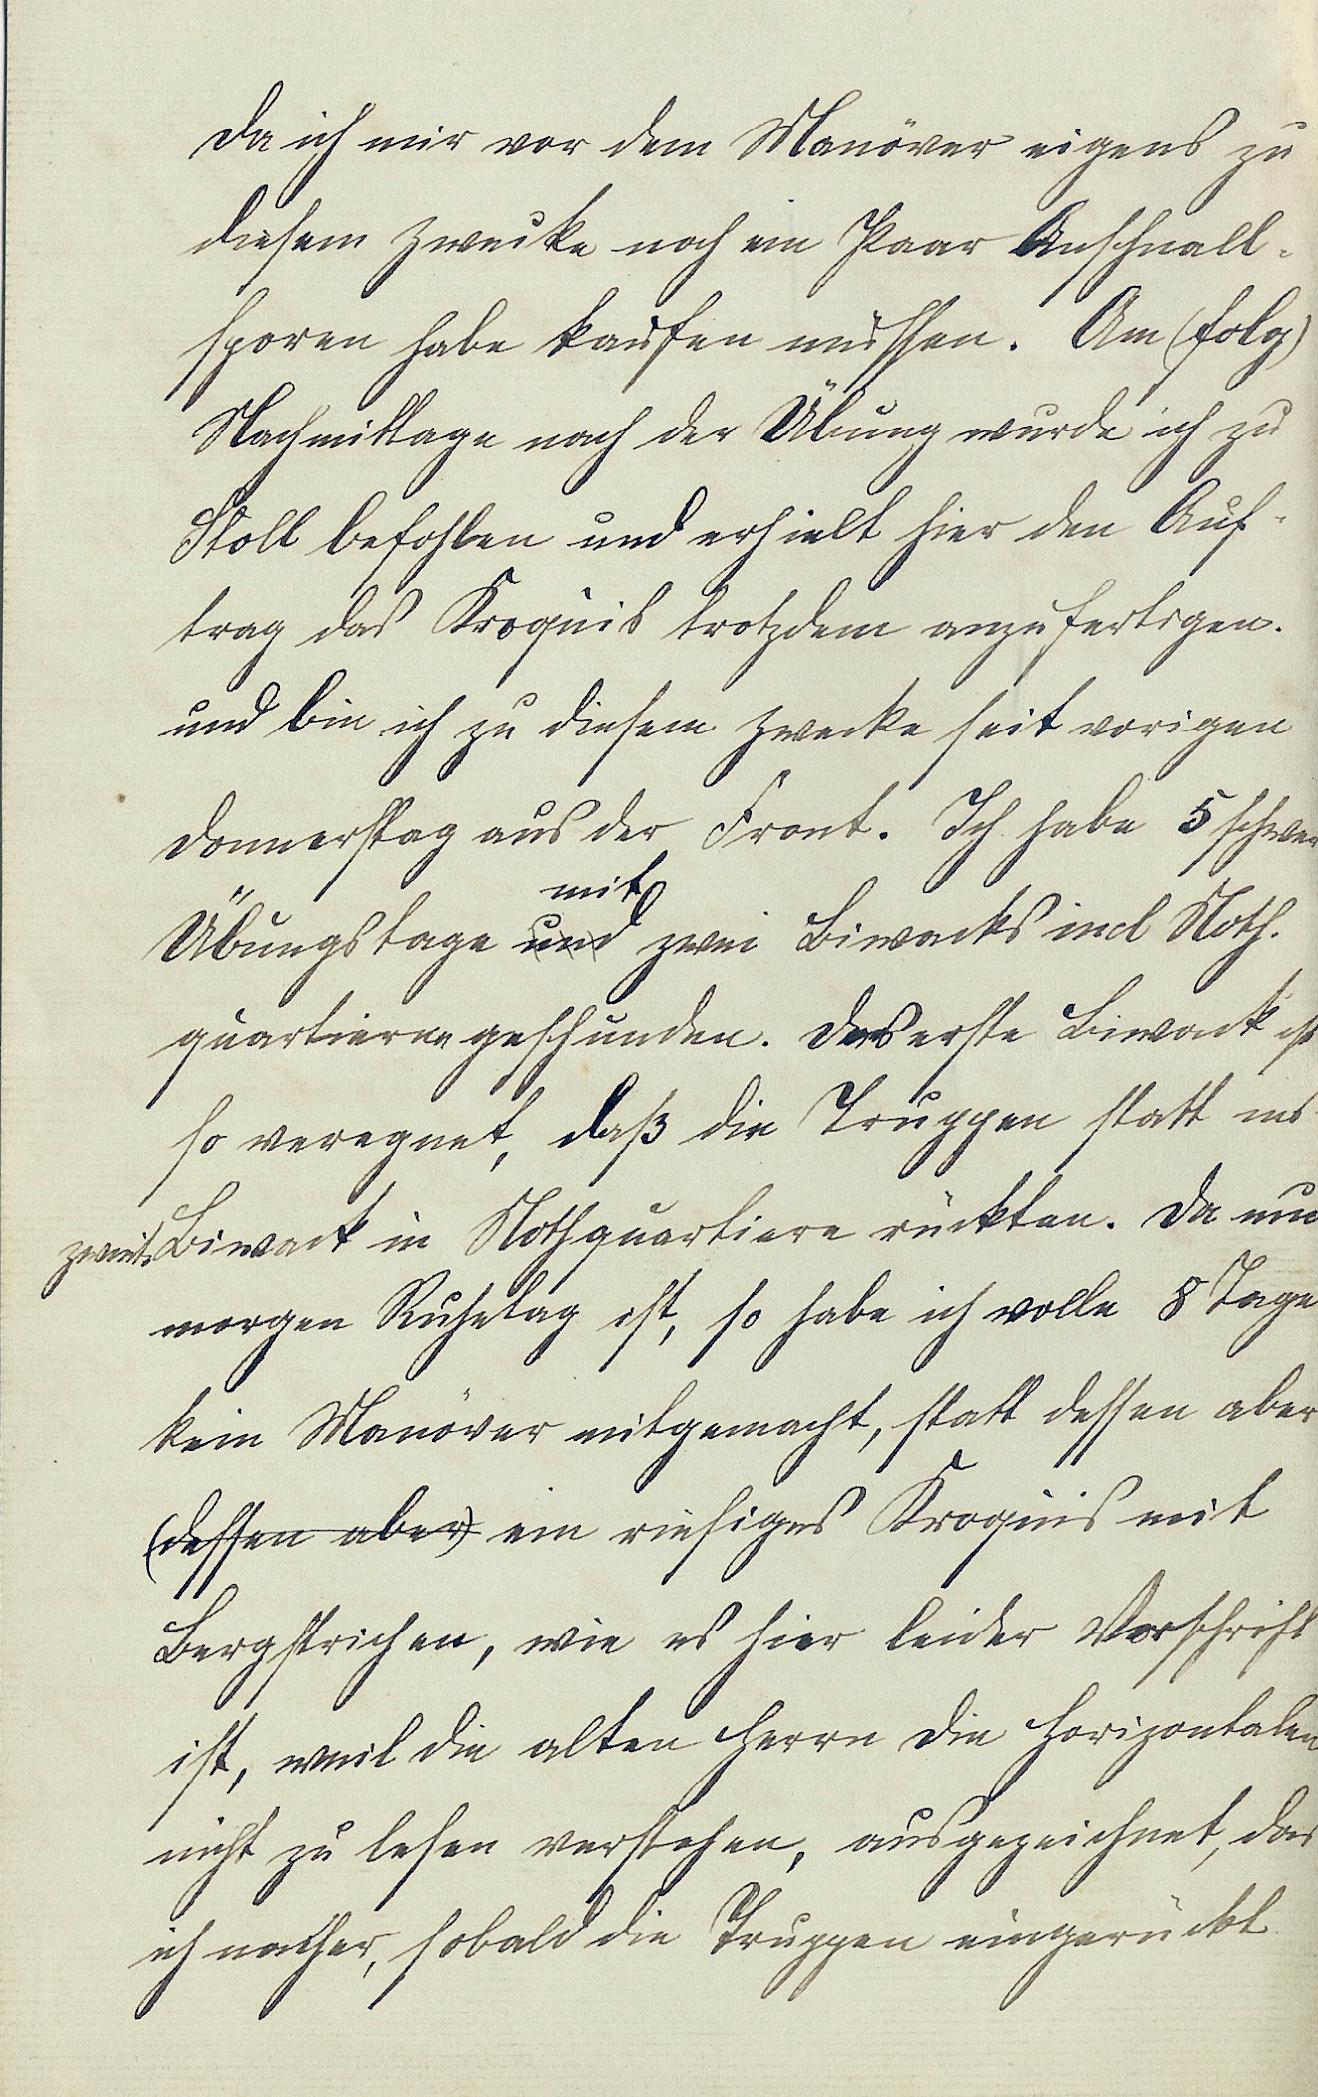 Da ich mir vor dem Manöver eigens zu
diesem Zwecke noch ein Paar Anschnall-
sporen habe kaufen müssen. Am (folg)
Nachmittage nach der Übung wurde ich zu
Stoll befohlen und erhielt hier den Auf-
trag das Kroquis trotzdem anzufertigen.
und bin ich zu diesem Zwecke seit vorigen
Donnerstag aus der Front. Ich habe 5 schwer
mit
Übungstage und zwei Biwacks incl Noth-
quartieren geschunden. Das erste Biwack ist
so veregnet, daß die Truppen statt ins
zweite Biwack in Nothquartiere rückten. Da nun
morgen Ruhetag ist, so habe ich volle 8 Tage
kein Manöver mitgemacht, statt dessen aber
(dessen aber) ein riesiges Kroquis mit
Bergstrichen, wie es hier leider Vorschrift
ist, weil die alten Herrn die Horizontalen
nicht zu lesen verstehen, ausgezeichnet, das
ich nacher, sobald die Truppen eingerückt